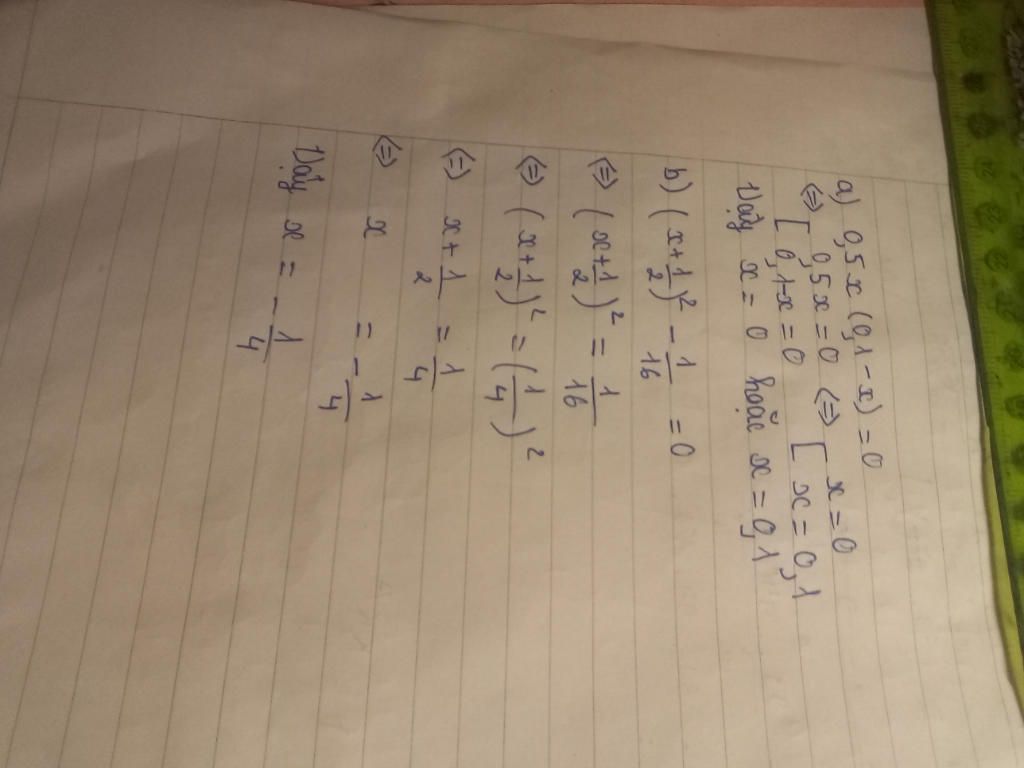 a) 0,5x (0,1 - x) = 0
<=> [ 0,5x = 0 <=> [ x = 0
0,1-x = 0 x = 0,1
Vậy x = 0 hoặc x = 0,1
b) (x + 1/2)² - 1/16 = 0
<=> (x + 1/2)² = 1/16
<=> (x + 1/2)² = (1/4)²
<=> x + 1/2 = 1/4
<=> x = - 1/4
Vậy x = - 1/4